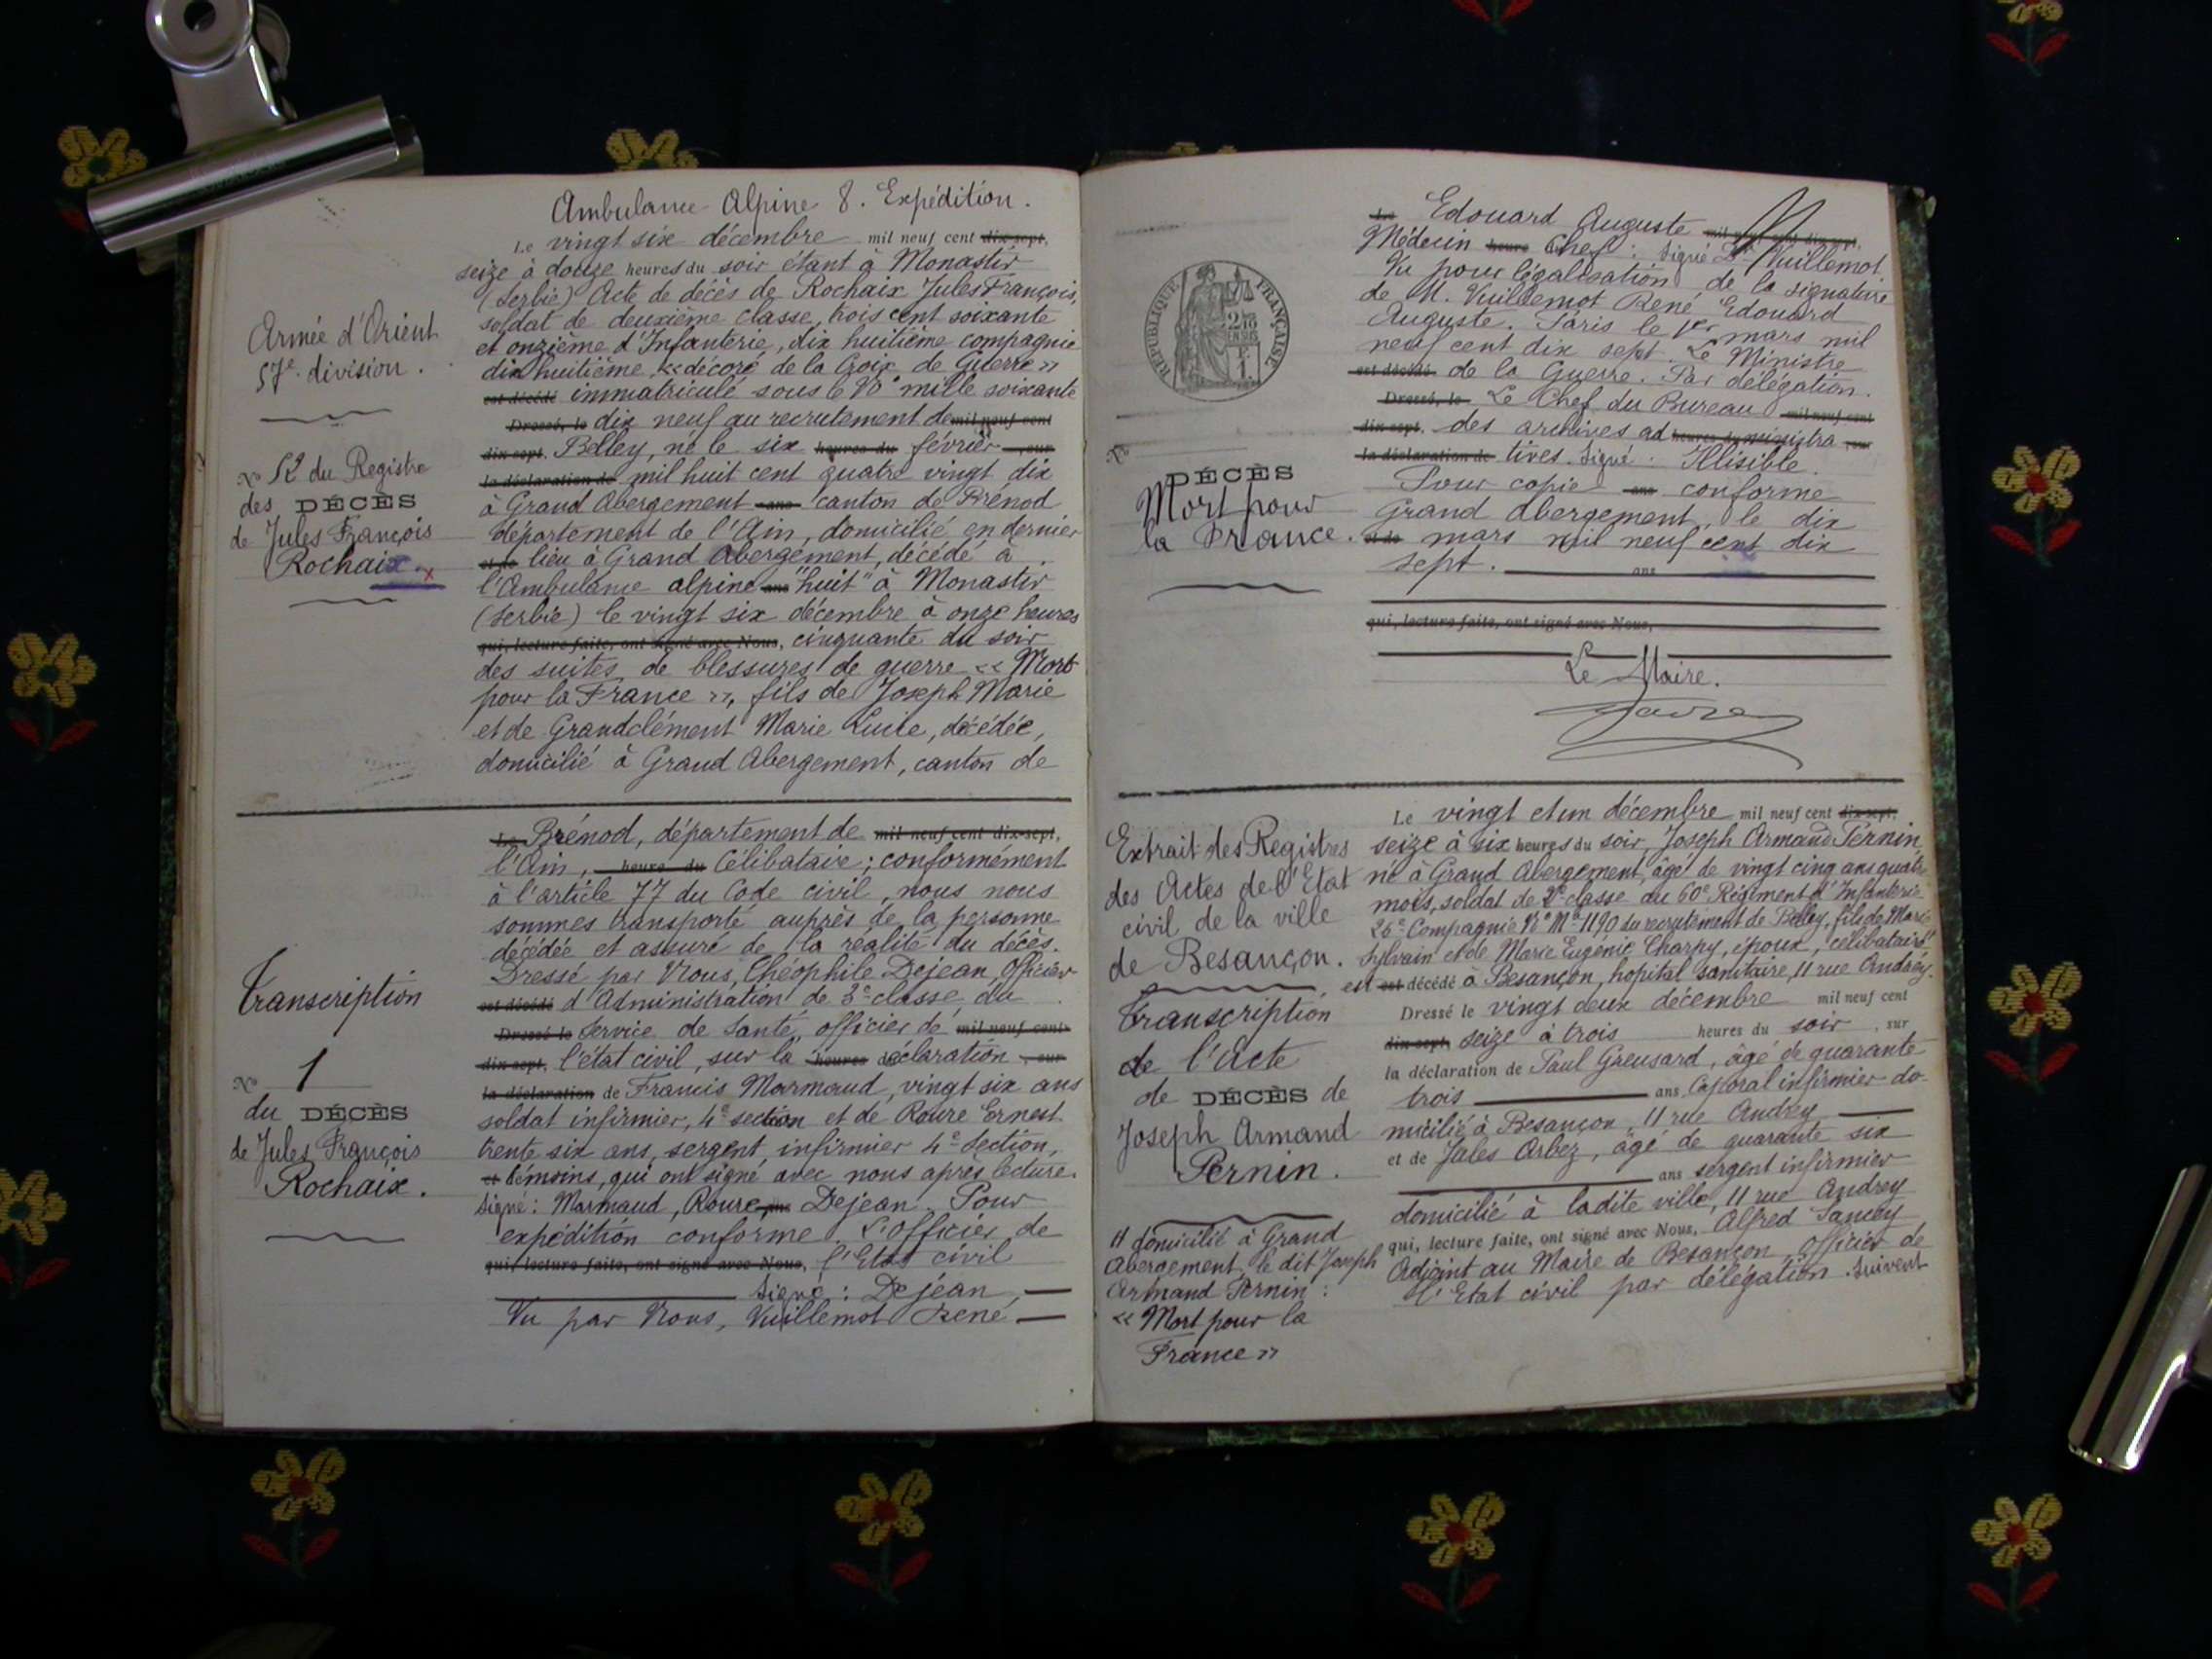 Ambulance Alpine 8. Expédition.
Le vingt six décembre mil neuf cent dix-sept,
seize à douze heures du soir étant à Monastir
(Serbie) Acte de décès de Rochaix Jules François,
soldat de deuxième classe, trois cent soixante
et onzième d'Infanterie, dix huitième compagnie
dix huitième «décoré de la Croix de Guerre»
est décédé immatriculé sous le No mille soixante
Dressé, le dix neuf au recrutement de mil neuf cent
dix-sept, Belley, né le six heures du février , sur
la déclaration de mil huit cent quatre vingt dix
à Grand Abergement ans canton de Brénod
département de l'Ain, domicilié en dernier
et de lieu à Grand Abergement, décédé à
l'Ambulance alpine ans "huit" à Monastir
(Serbie) le vingt six décembre à onze heures
qui, lecture faite, ont signé avec Nous, cinquante du soir
des suites de blessures de guerre «Mort
pour la France», fils de Joseph Marie
et de Grandclément Marie Lucie, décédée,
domicilié à Grand Abergement, canton de
Armée d'Orient
57e division.
No 52 du Registre
des DÉCÈS
de Jules François
Rochaix. x
Le Brénod, département de mil neuf cent dix-sept,
l'Ain, heure du Célibataire; conformément
à l'article 77 du Code civil, nous nous
sommes transporté auprès de la personne
décédée et assuré de la réalité du décès.
Dressé par Nous, Théophile Dejean, Officier
est décédé d'Administration de 3e classe du
Dressé le Service de Santé, officier de mil neuf cent
dix-sept, l'état civil, sur la heures déclaration , sur
la déclaration de Francis Marmaud, vingt six ans
soldat infirmier, 4e section et de Roure Ernest
trente six ans, sergent infirmier 4e Section,
et témoins, qui ont signé avec nous après lecture.
Signé: Marmaud, Roure, ans Dejean. Pour
expédition conforme. L'Officier de
qui, lecture faite, ont signé avec Nous, l'Etat civil
Signé: Dejean,
Vu par Nous, Vuillemot René
Transcription
No 1
du DÉCÈS
de Jules François
Rochaix.
Le Edouard Auguste mil neuf cent dix-sept,
Médecin heure Chef: Signé Dr Vuillemot
Vu pour légalisation de la signature
de M. Vuillemot René Edouard
Auguste. Paris le 1er mars mil
neuf cent dix sept. Le Ministre
est décédé de la Guerre. Par délégation.
Dressé, le Le Chef du Bureau mil neuf cent
dix-sept, des archives ad heures du ministra , sur
la déclaration de tives. Signé: Illisible.
Pour copie ans conforme
Grand Abergement, le dix
et de mars mil neuf cent dix
sept. ans
qui, lecture faite, ont signé avec Nous,
Le Maire.
RÉPUBLIQUE FRANÇAISE
No
DÉCÈS
Mort pour
la France.
Le vingt et un décembre mil neuf cent dix-sept,
seize à six heures du soir, Joseph Armand Pernin
né à Grand Abergement, âgé de vingt cinq ans quatre
mois, soldat de 2e classe du 60e Régiment d'Infanterie
26e Compagnie No Mle 1190 du recrutement de Belley, fils de Marie
Sylvain et de Marie Eugénie Charpy, époux, célibataire"
est est décédé à Besançon, hopital sanitaire, 11 rue Andrey.
Dressé le vingt deux décembre mil neuf cent
dix-sept, seize à trois heures du soir , sur
la déclaration de Paul Greusard, âgé de quarante
trois ans, Caporal infirmier do-
micilié à Besançon, 11 rue Andrey
et de Jules Arbez, âgé de quarante six
ans sergent infirmier
domicilié à ladite ville, 11 rue Andrey
qui, lecture faite, ont signé avec Nous, Alfred Sancey
Adjoint au Maire de Besançon, Officier de
l'Etat civil par délégation. Suivent
Extrait des Registres
des Actes de l'Etat
civil de la ville
de Besançon.
Transcription
de l'acte
de DÉCÈS de
Joseph Armand
Pernin.
" domicilié à Grand
Abergement, le dit Joseph
Armand Pernin:
«Mort pour la
France»